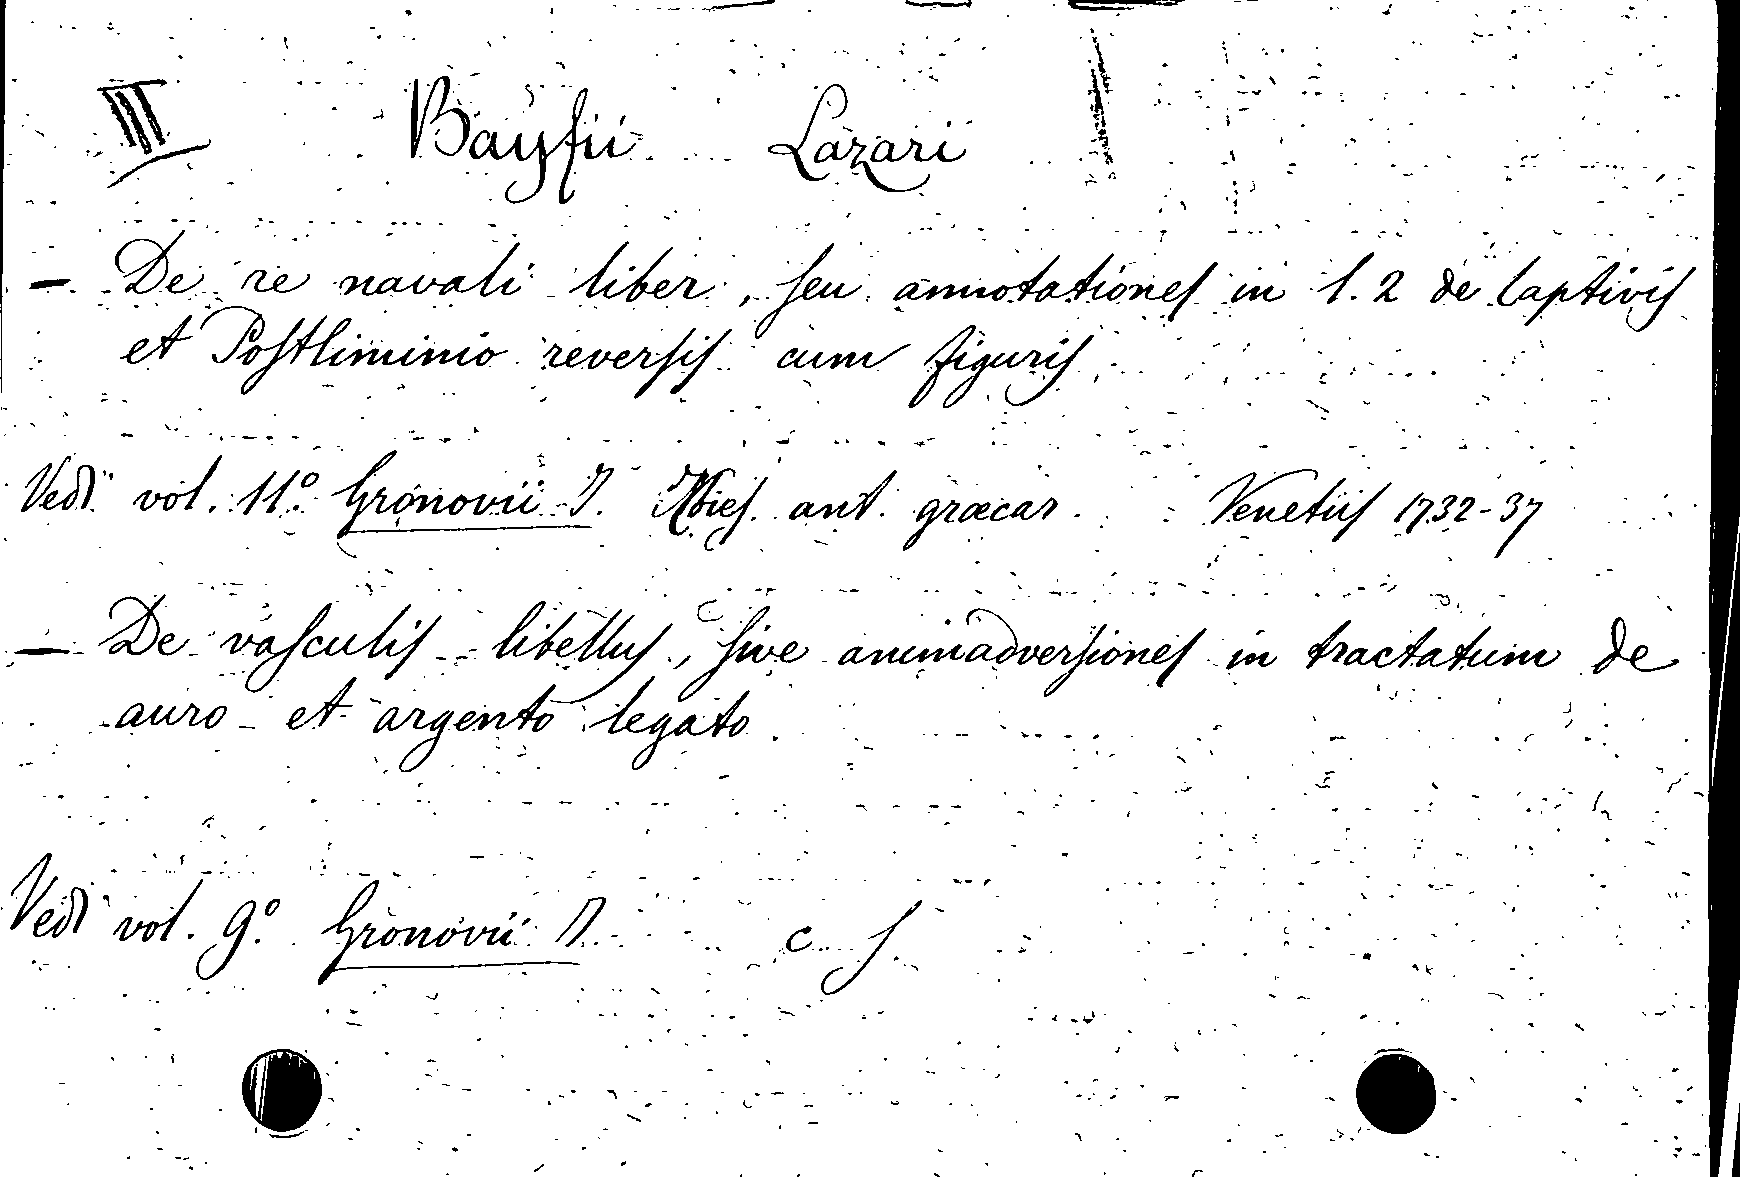 III Bayfii Lazari
- De re navali liber, seu annotationes in l. 2 de Captivis
et Postliminio reversis cum figuris.
Vedi vol. 11º Gronovii J. ant. græcar. Venetiis 1732-37
- De vasculis libellus, sive animadversiones in tractatum de
auro et argento legato.
Vedi vol. 9º Gronovii J. c. s.